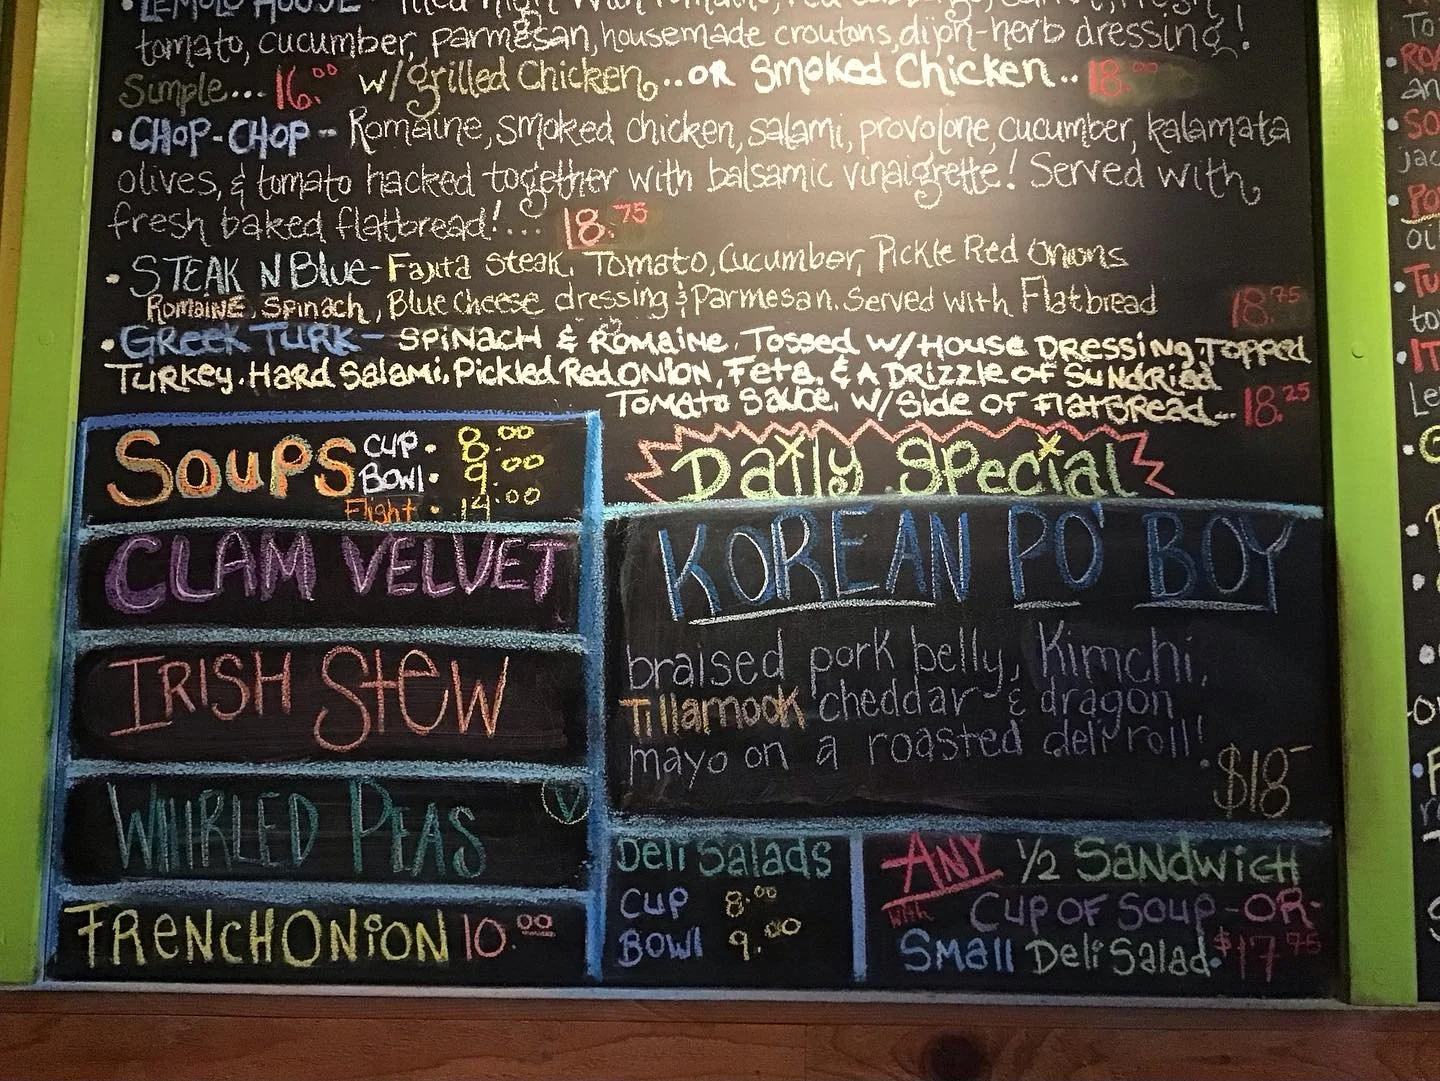 • LEMOLO HOUSE -
tomato, cucumber, parmesan, housemade croutons, dijon-herb dressing!
Simple... 16.00 w/grilled Chicken... OR Smoked Chicken.. 18.00
• CHOP-CHOP - Romaine, smoked chicken, salami, provolone, cucumber, kalamata
olives, & tomato hacked together with balsamic vinaigrette! Served with
fresh baked flatbread!... 18.75
• STEAK N Blue- Fajita Steak, Tomato, Cucumber, Pickle Red Onions
Romaine, Spinach, Blue Cheese dressing & Parmesan. Served with Flatbread 18.75
• GREEK TURK- SPINACH & ROMAINE, Tossed W/House DRESSING, Topped
TURKEY, Hard Salami, Pickled Red Onion, Feta, & A DRIZZLE OF SUNDRIED
TOMATO SAUCE, W/Side OF FLATBREAD... 18.25
SOUPS CUP • 8.00
BOWL • 9.00
Flight • 14.00
CLAM VELVET
IRISH STEW
WHIRLED PEAS V
FRENCH ONION 10.00
Daily Special
KOREAN PO' BOY
braised pork belly, Kimchi,
Tillamook cheddar & dragon
mayo on a roasted deli roll!
$18-
Deli Salads
CUP 8.00
BOWL 9.00
ANY 1/2 SANDWICH
with CUP OF SOUP -OR-
SMALL Deli Salad. $17.75